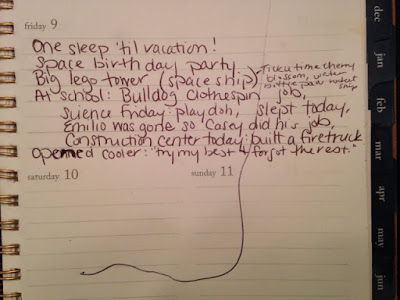 friday 9
One sleep 'til vacation!
Space birthday party
Big lego tower (space ship)
Ticku time cherry
blossom, water
bottle paw rocket
ship
At school: Bulldog Clothespin job,
science friday: playdoh, slept today,
Emilio was gone so Casey did his job,
Construction center today: built a firetruck
opened cooler: "try my best & forgot the rest."
saturday 10
sunday 11
dec
jan
feb
mar
apr
may
jun